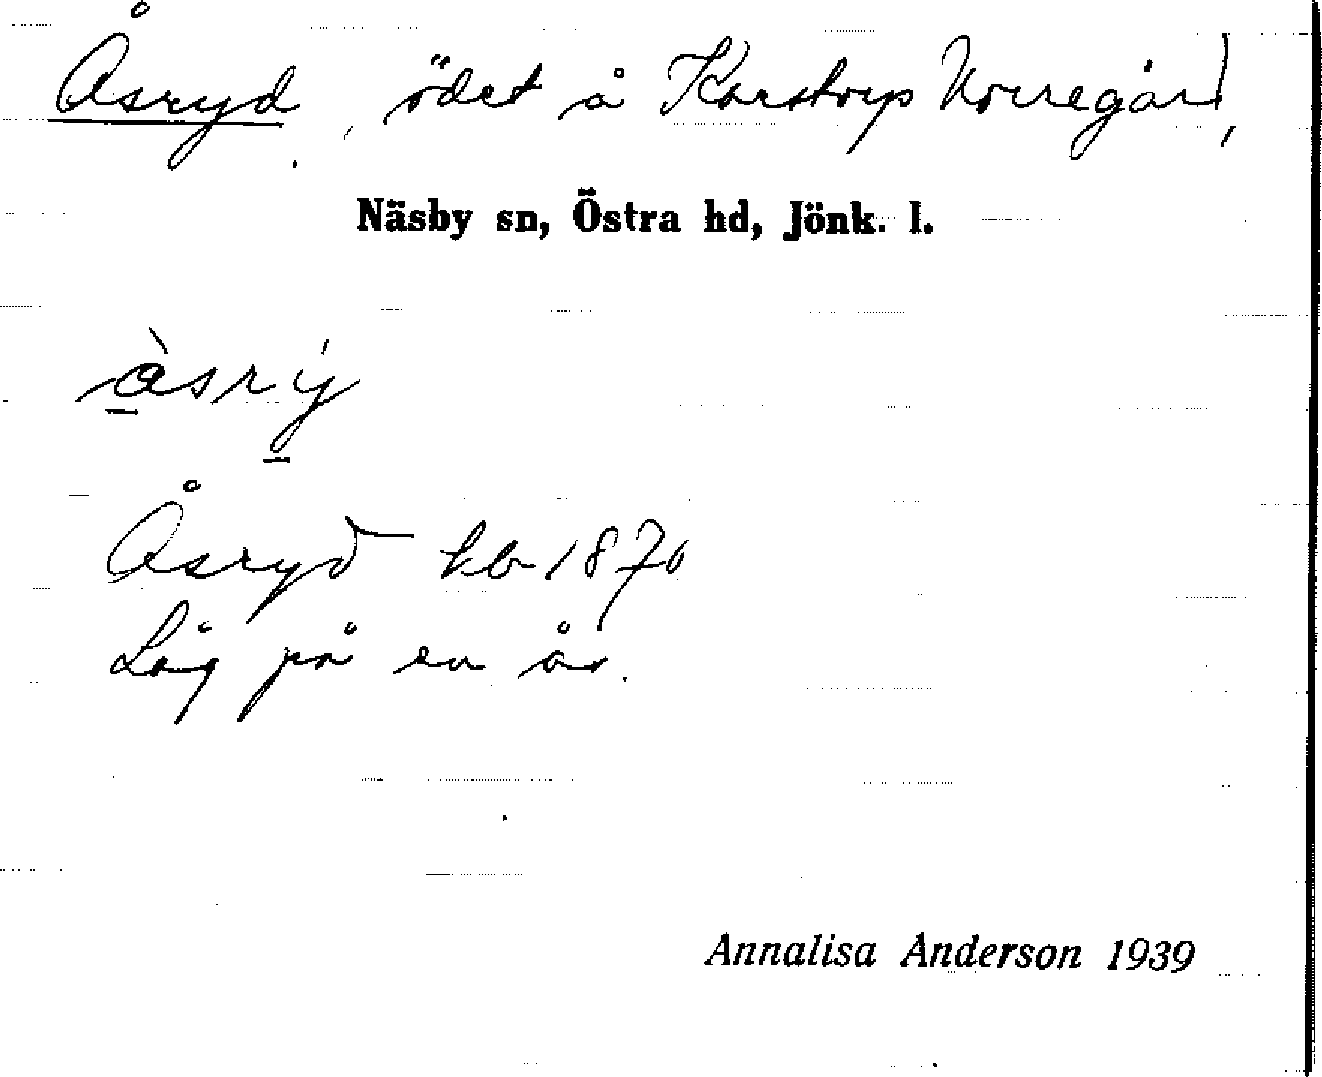 Åsryd, ödet å Karstorp Norregård,
Näsby sn, Östra hd, Jönk. l.
àsrý
Åsryd kb 1870
Låg på en ås.
Annalisa Anderson 1939